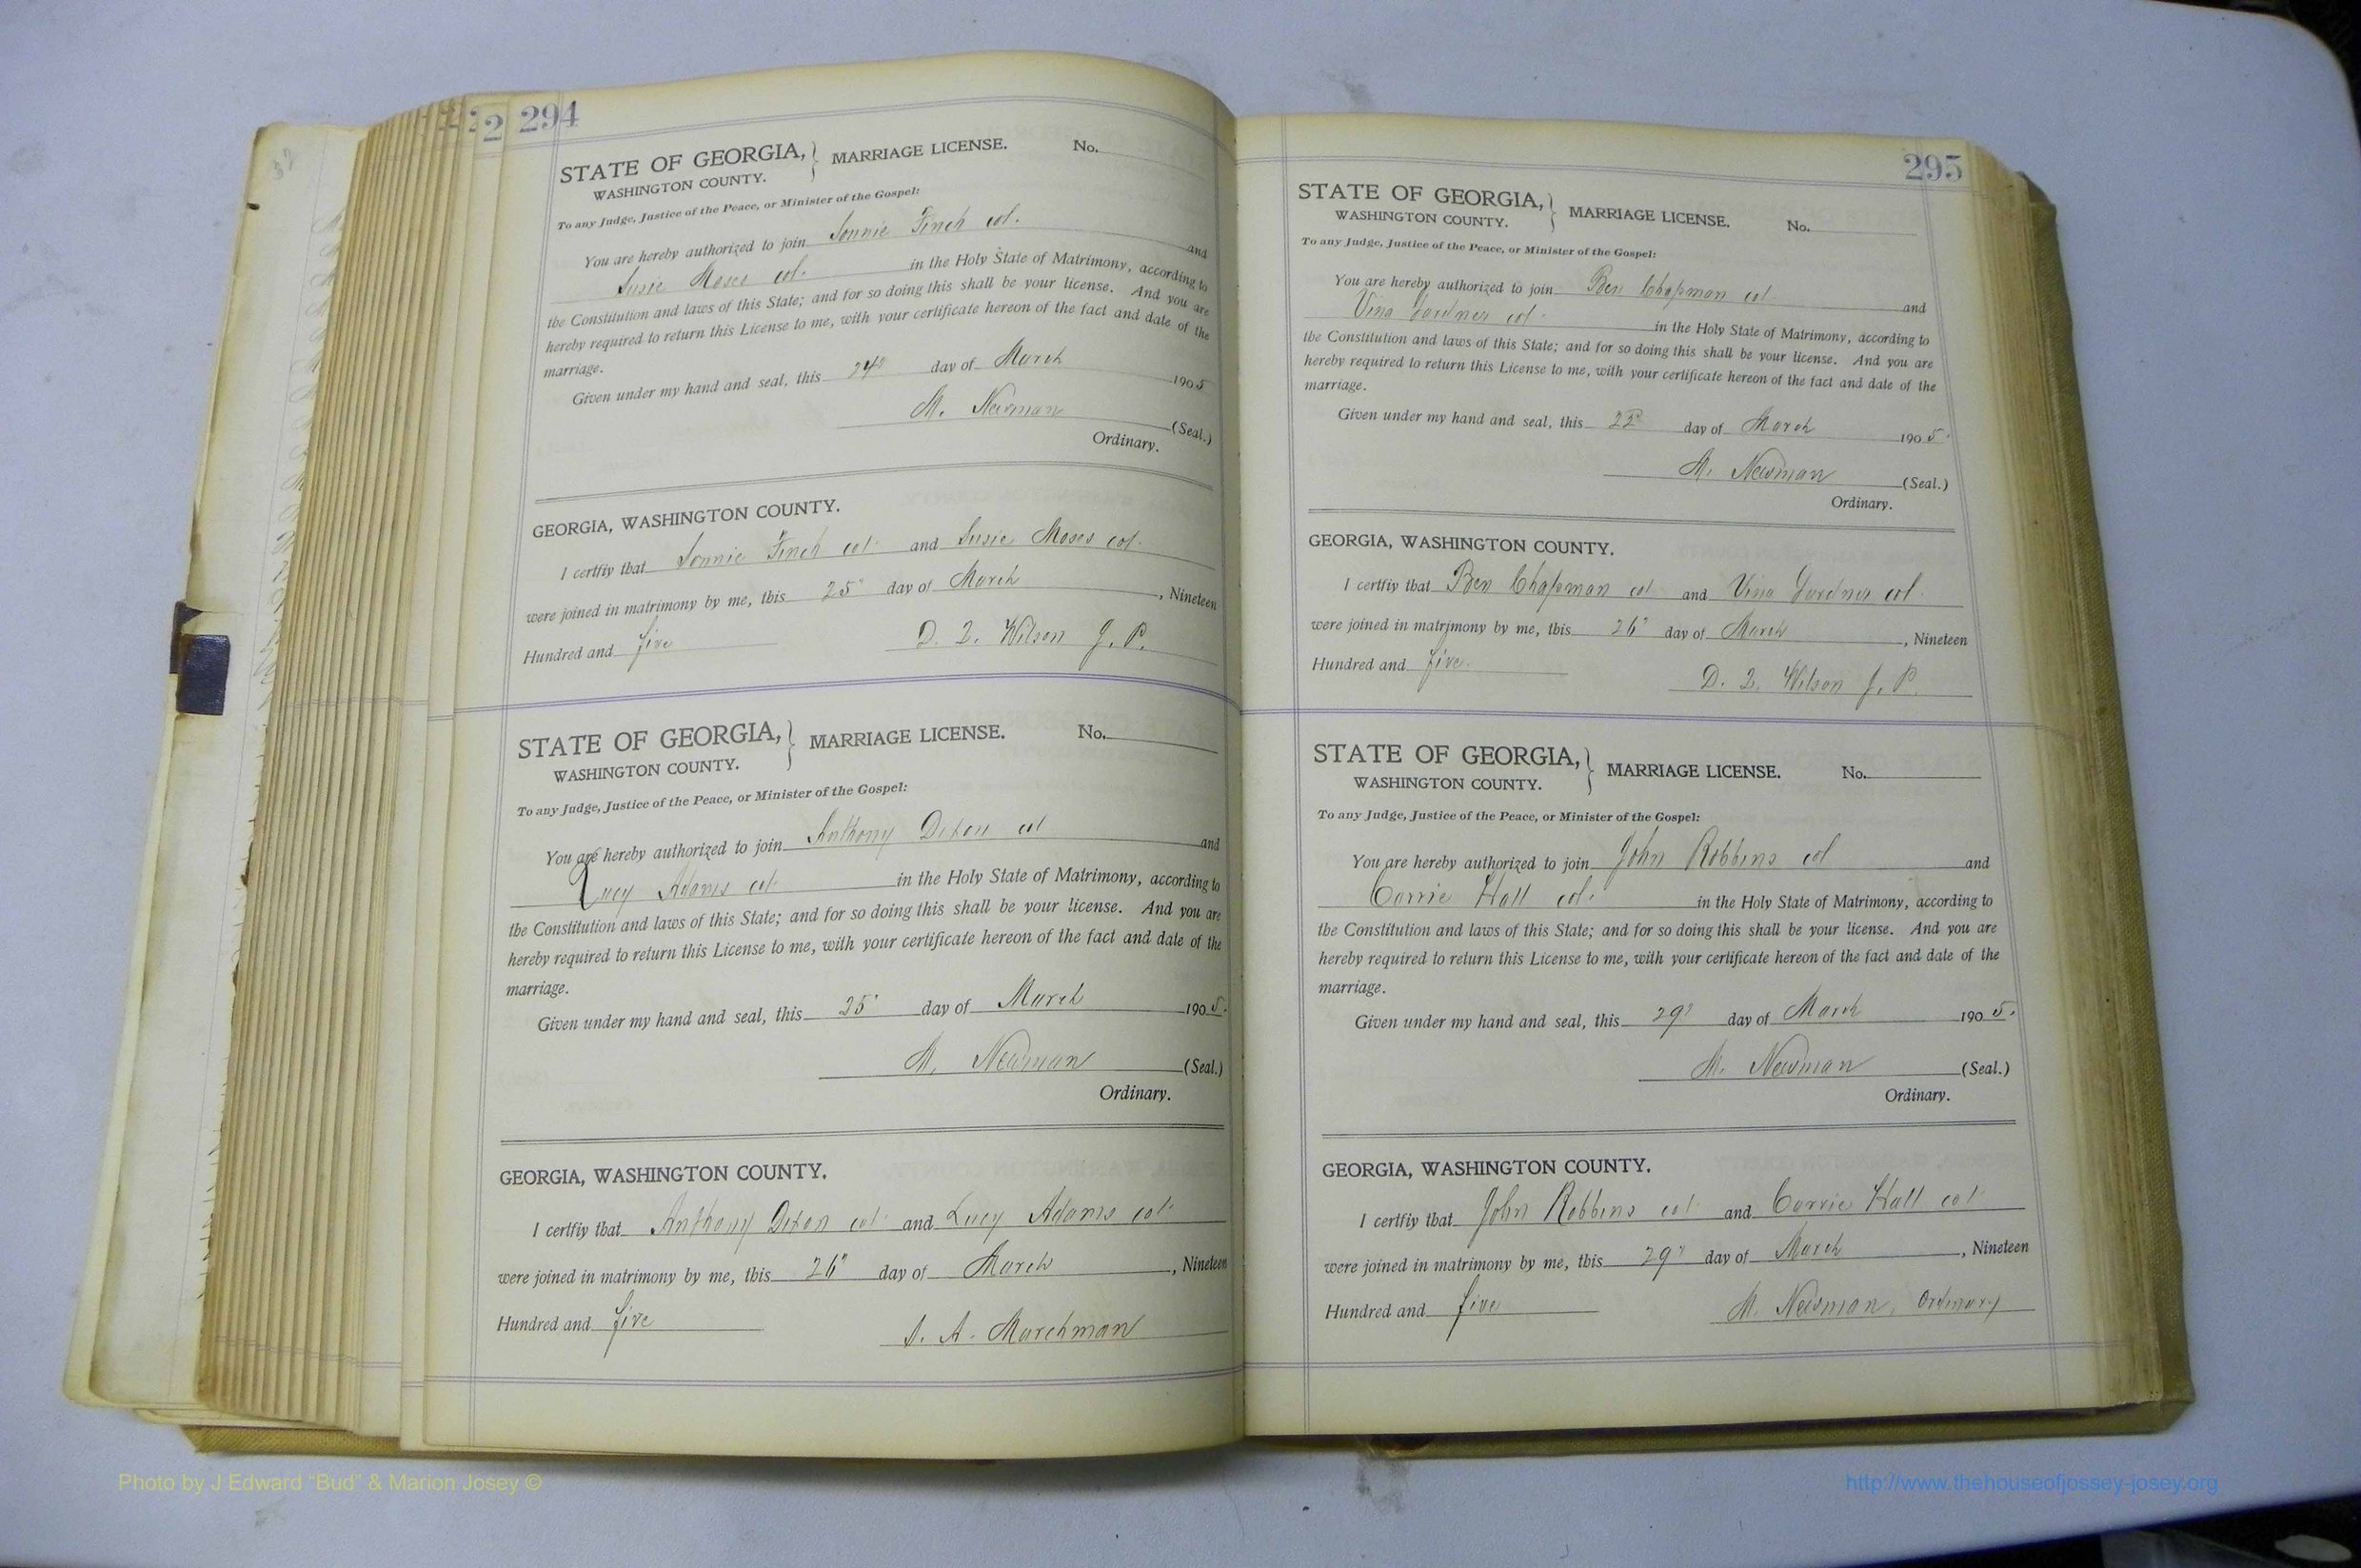 2 294
STATE OF GEORGIA, } MARRIAGE LICENSE. No.
WASHINGTON COUNTY.
To any Judge, Justice of the Peace, or Minister of the Gospel:
You are hereby authorized to join Lonnie Finch col. and
Susie Moses col. in the Holy State of Matrimony, according to
the Constitution and laws of this State; and for so doing this shall be your license. And you are
hereby required to return this License to me, with your certificate hereon of the fact and date of the
marriage.
Given under my hand and seal, this 24" day of March 1905
M. Newman (Seal.)
Ordinary.
GEORGIA, WASHINGTON COUNTY.
I certfiy that Lonnie Finch col. and Susie Moses col.
were joined in matrimony by me, this 25" day of March, Nineteen
Hundred and five D. Q. Wilson J. P.
STATE OF GEORGIA, } MARRIAGE LICENSE. No.
WASHINGTON COUNTY.
To any Judge, Justice of the Peace, or Minister of the Gospel:
You are hereby authorized to join Anthony Dixon col and
Lucy Adams col. in the Holy State of Matrimony, according to
the Constitution and laws of this State; and for so doing this shall be your license. And you are
hereby required to return this License to me, with your certificate hereon of the fact and date of the
marriage.
Given under my hand and seal, this 25" day of March 1905.
M. Newman (Seal.)
Ordinary.
GEORGIA, WASHINGTON COUNTY.
I certfiy that Anthony Dixon col. and Lucy Adams col.
were joined in matrimony by me, this 26" day of March, Nineteen
Hundred and five S. A. Marchman
295
STATE OF GEORGIA, } MARRIAGE LICENSE. No.
WASHINGTON COUNTY.
To any Judge, Justice of the Peace, or Minister of the Gospel:
You are hereby authorized to join Ben Chapman col and
Vina Gardner col. in the Holy State of Matrimony, according to
the Constitution and laws of this State; and for so doing this shall be your license. And you are
hereby required to return this License to me, with your certificate hereon of the fact and date of the
marriage.
Given under my hand and seal, this day of March 1905.
M. Newman (Seal.)
Ordinary.
GEORGIA, WASHINGTON COUNTY.
I certfiy that Ben Chapman col. and Vina Gardner col.
were joined in matrimony by me, this 26" day of March, Nineteen
Hundred and five. D. Q. Wilson J. P.
STATE OF GEORGIA, } MARRIAGE LICENSE. No.
WASHINGTON COUNTY.
To any Judge, Justice of the Peace, or Minister of the Gospel:
You are hereby authorized to join John Robbins col and
Carrie Hall col. in the Holy State of Matrimony, according to
the Constitution and laws of this State; and for so doing this shall be your license. And you are
hereby required to return this License to me, with your certificate hereon of the fact and date of the
marriage.
Given under my hand and seal, this 29" day of March 1905.
M. Newman (Seal.)
Ordinary.
GEORGIA, WASHINGTON COUNTY.
I certfiy that John Robbins col. and Carrie Hall col.
were joined in matrimony by me, this 29" day of March, Nineteen
Hundred and five M. Newman, Ordinary
Photo by J Edward “Bud” & Marion Josey ©
http://www.thehouseofjossey-josey.org